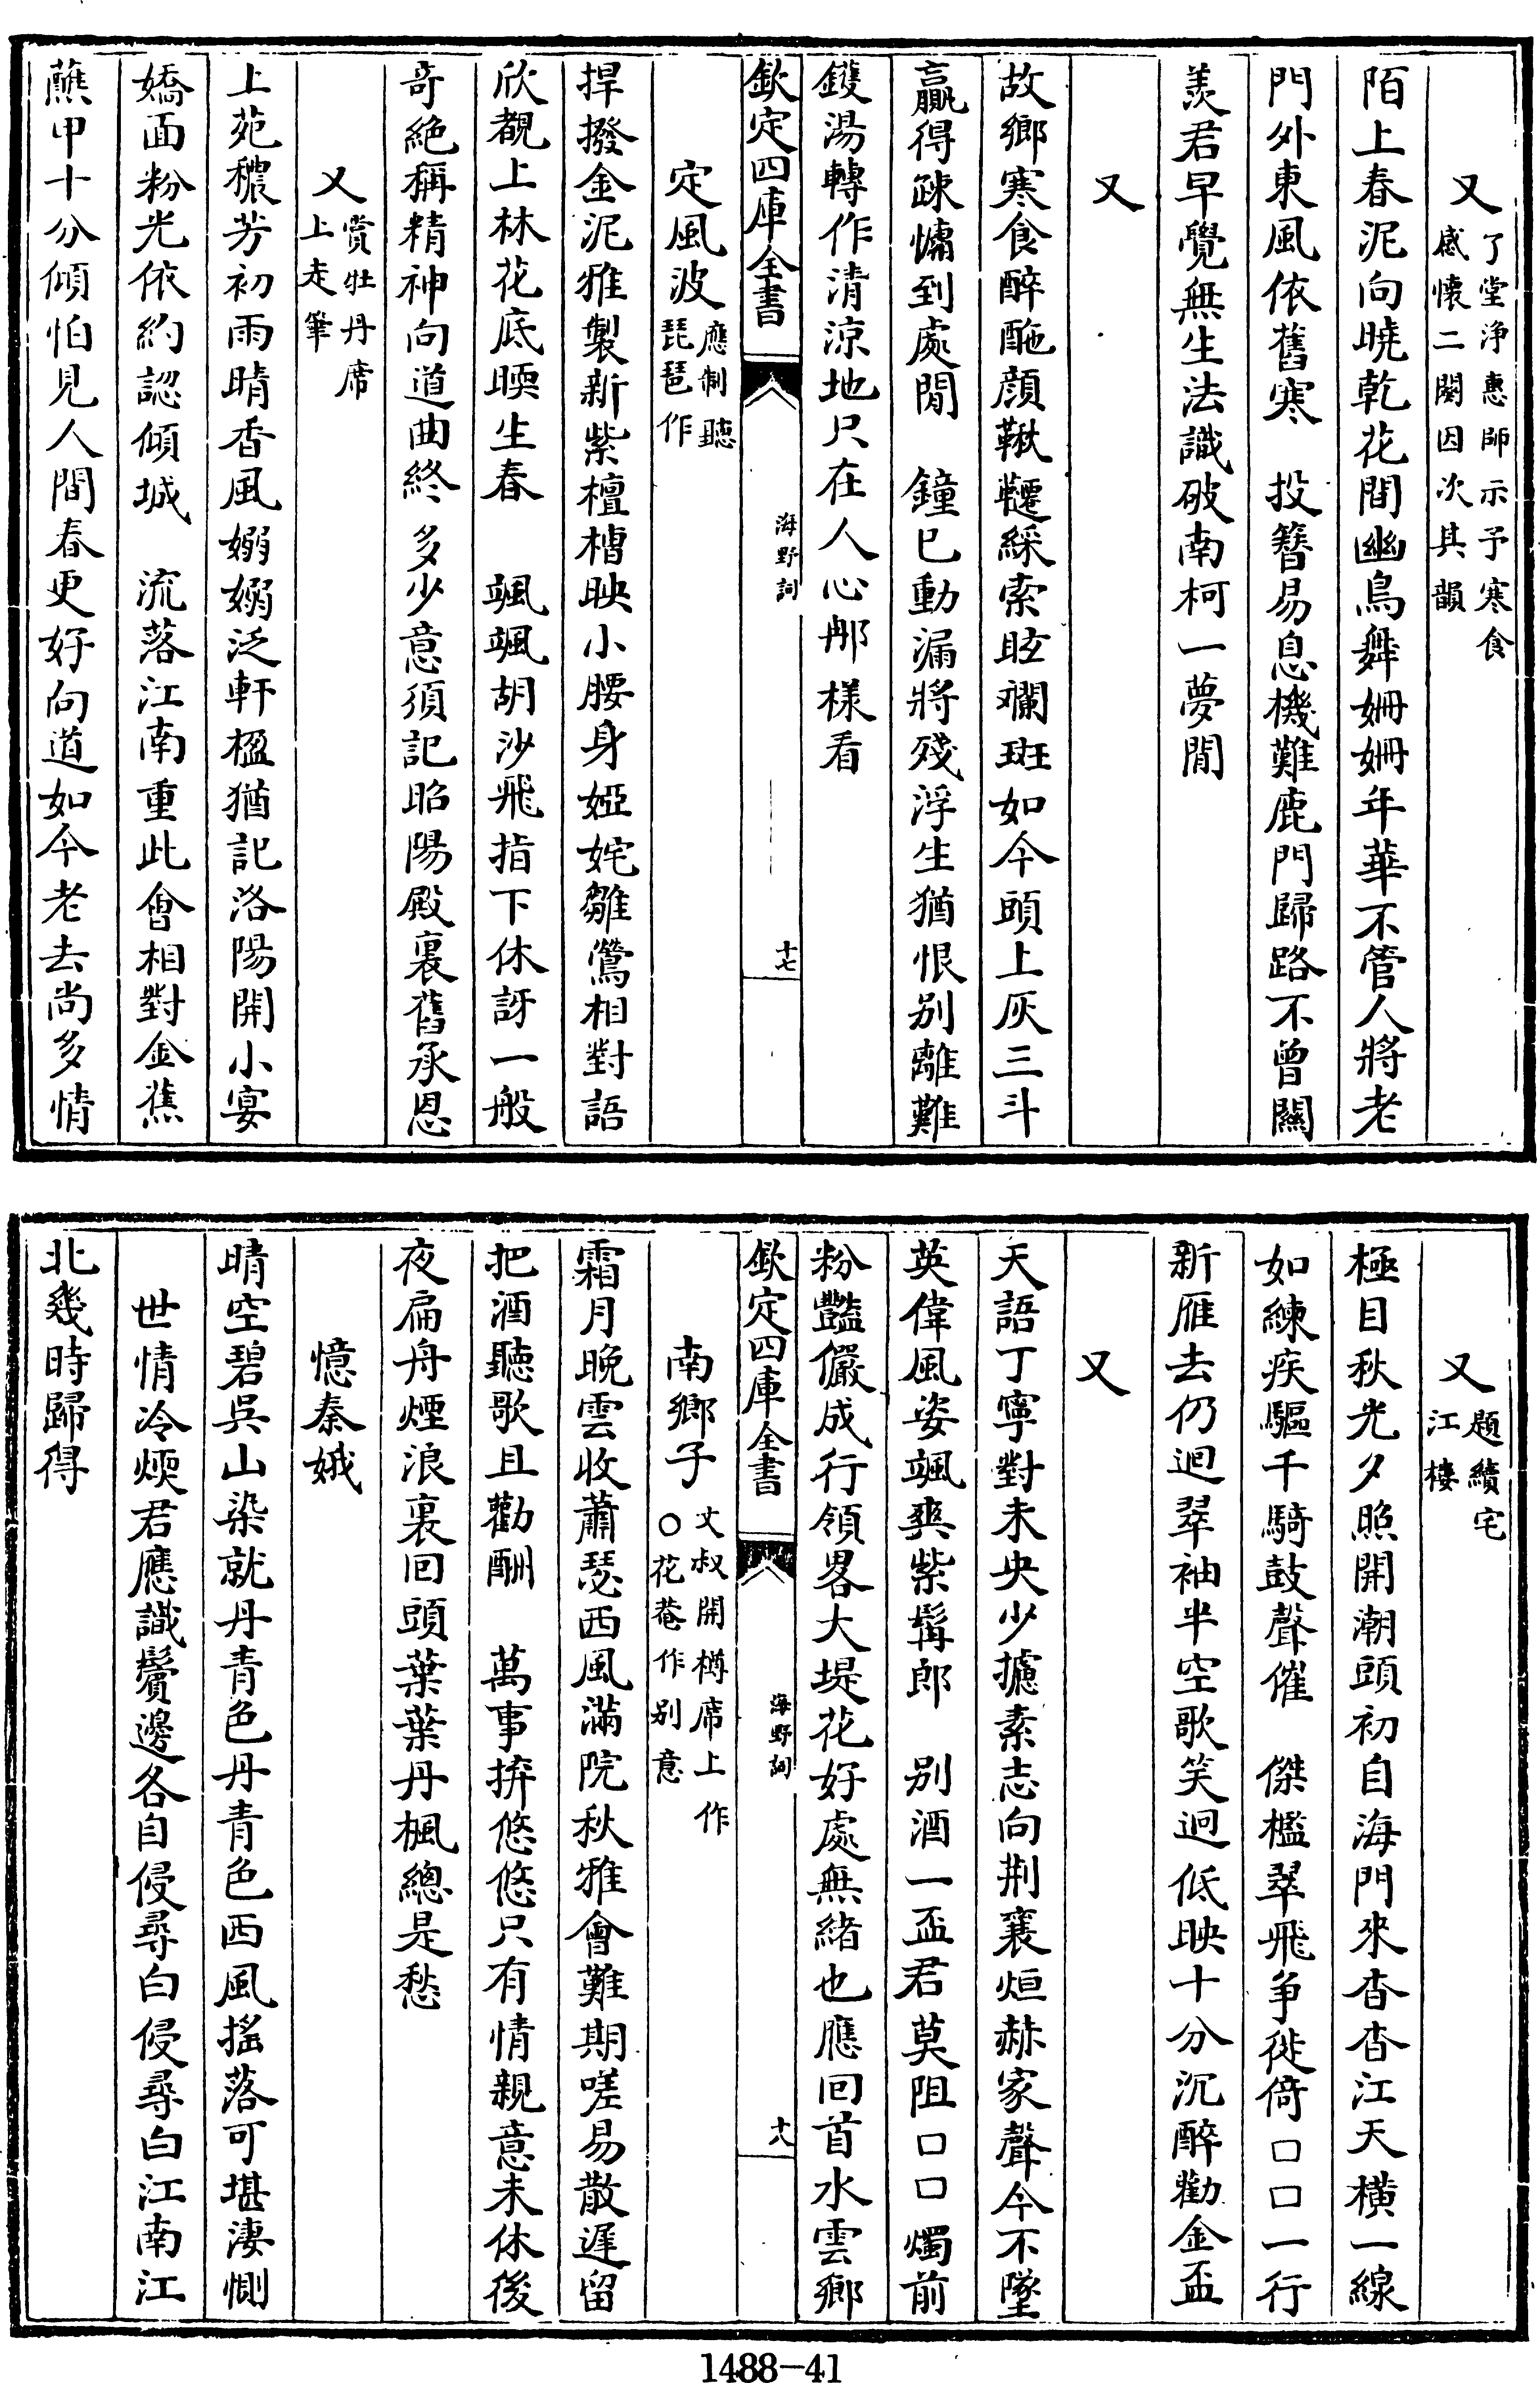 又了堂浄惠師示予寒食
感懐二闋因次其韻
陌上春泥向曉乾花間幽鳥舞姍姍年華不管人將老
門外東風依舊寒　投簪易息機難鹿門歸路不曾關
羨君早覺無生法識破南柯一夢閒
又
故鄉寒食醉酡顔鞦韆綵索眩斕斑如今頭上灰三斗
贏得疎慵到處閒　鐘已動漏將殘浮生猶恨别離難
鑊湯轉作清涼地只在人心那様看
欽定四庫全書
海野詞
十七
定風波應制聽
琵琶作
捍撥金泥雅製新紫檀槽映小腰身婭姹雛鶯相對語
欣覩上林花底暝生春　颯颯胡沙飛指下休訝一般
奇絶稱精神向道曲終多少意須記昭陽殿裏舊承恩
又賞牡丹席
上走筆
上苑穠芳初雨晴香風嫋嫋泛軒楹猶記洛陽開小宴
嬌面粉光依約認傾城　流落江南重此會相對金蕉
蘸甲十分傾怕見人間春更好向道如今老去尚多情
又題續宅
江樓
極目秋光夕照開潮頭初自海門來杳杳江天横一線
如練疾驅千騎鼓聲催　傑檻翠飛争徙倚口口一行
新雁去仍迴翠袖半空歌笑迴低映十分沉醉勸金盃
又
天語丁寧對未央少攄素志向荆襄烜赫家聲今不墜
英偉風姿颯爽紫髯郎　别酒一盃君莫阻口口燭前
粉豔儼成行領畧大堤花好處無緒也應回首水雲鄉
欽定四庫全書
海野詞
十八
南鄉子丈叔開樽席上作
○花菴作别意
霜月晚雲收蕭瑟西風滿院秋雅會難期嗟易散遲留
把酒聽歌且勸酬　萬事拚悠悠只有情親意未休後
夜扁舟煙浪裏回頭葉葉丹楓總是愁
憶秦娥
晴空碧吳山染就丹青色丹青色西風摇落可堪淒惻
世情冷煖君應識鬢邊各自侵尋白侵尋白江南江
北幾時歸得
1488-41